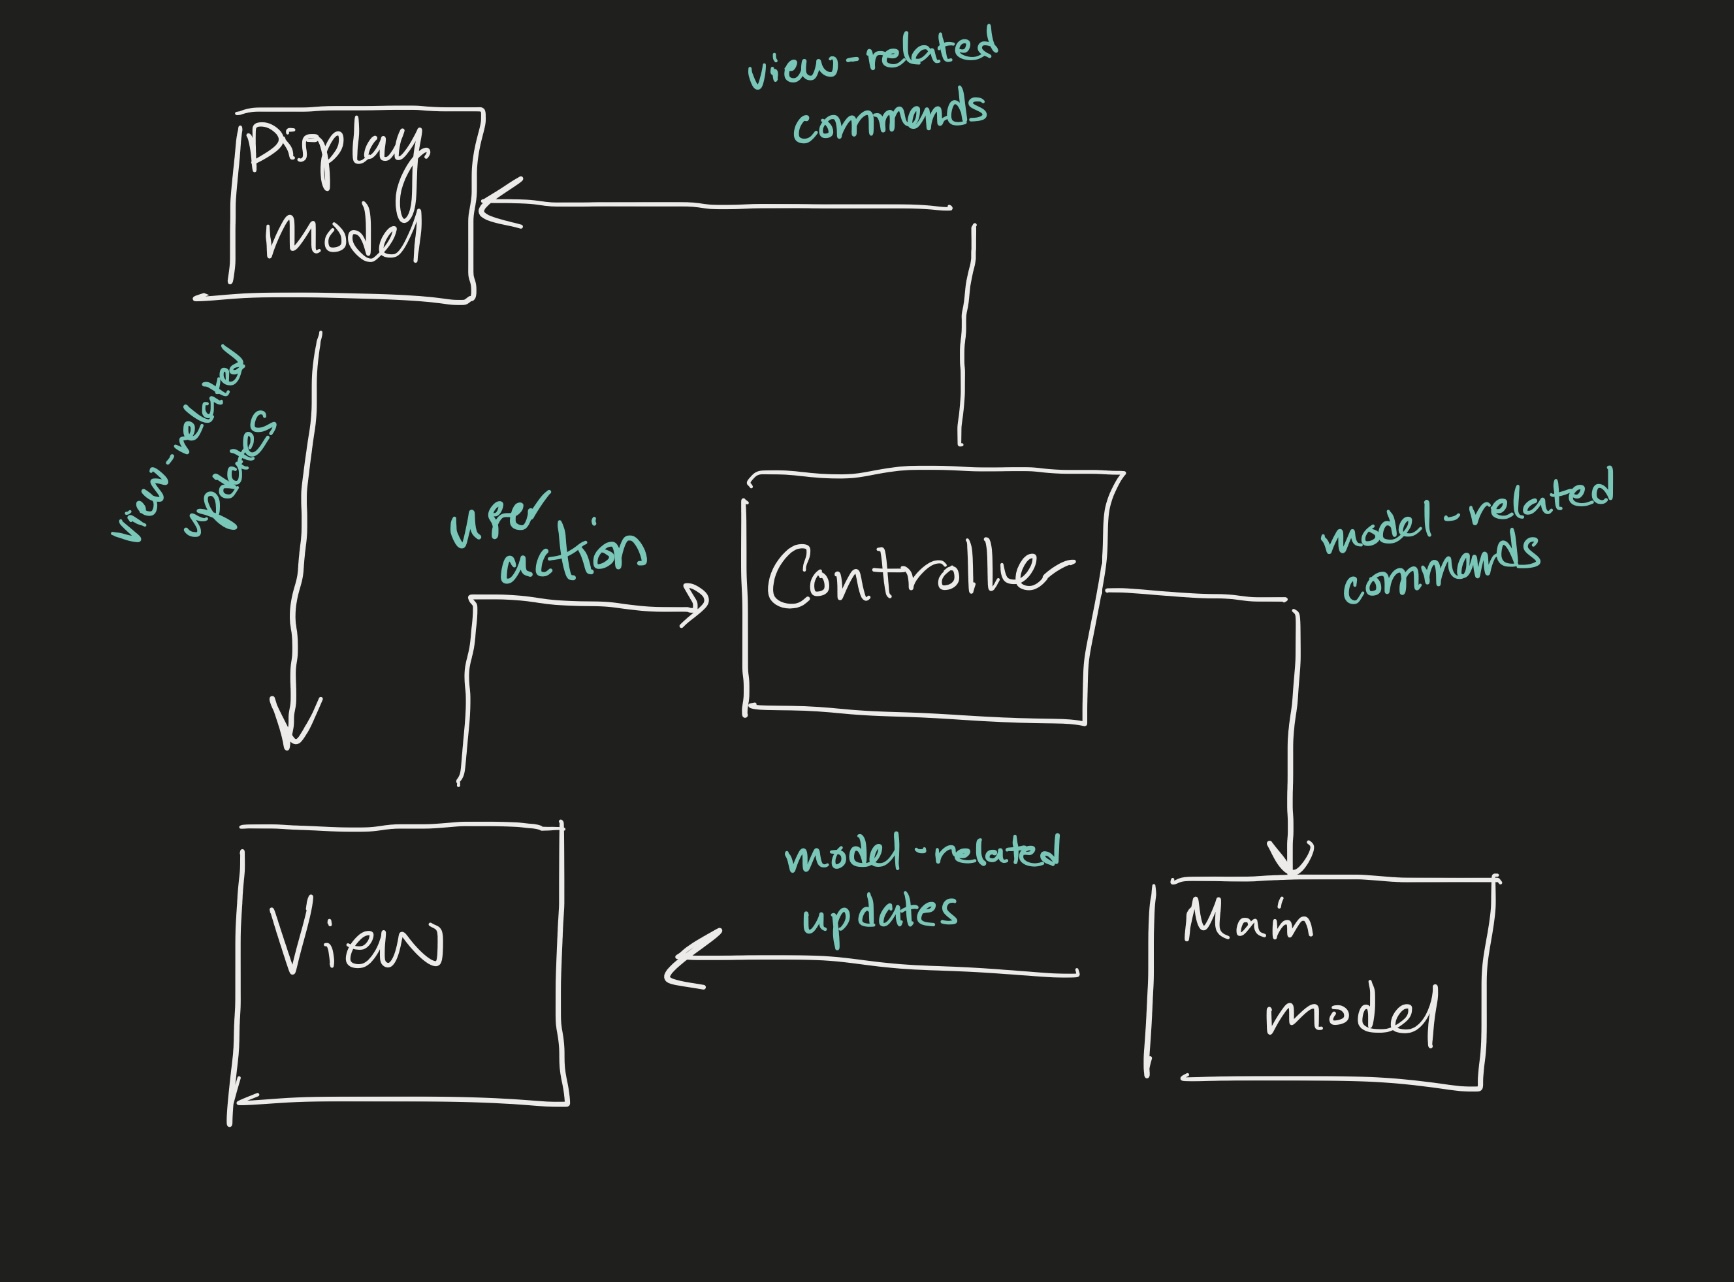 view-related
commands
Display
model
view-related
updates
user
action
Controller
model-related
commands
model-related
updates
View
Main
model